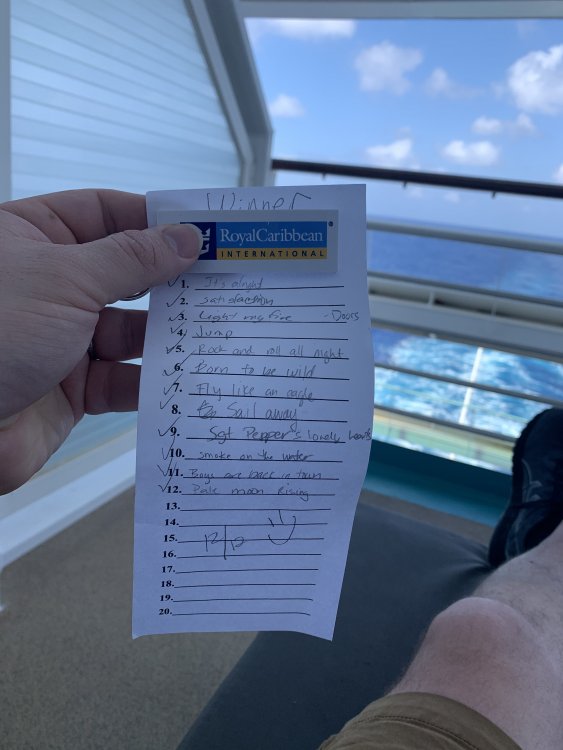 Winner
RoyalCaribbean®
INTERNATIONAL
1. It's alright
2. Satisfaction
3. Light my fire - Doors
4. Jump
5. Rock and roll all night
6. Born to be wild
7. Fly like an eagle
8. Sail away
9. Sgt Pepper's lonely hearts
10. Smoke on the water
11. Boys are back in town
12. Pale moon Rising
13.
14.
15. 12/12
16.
17.
18.
19.
20.